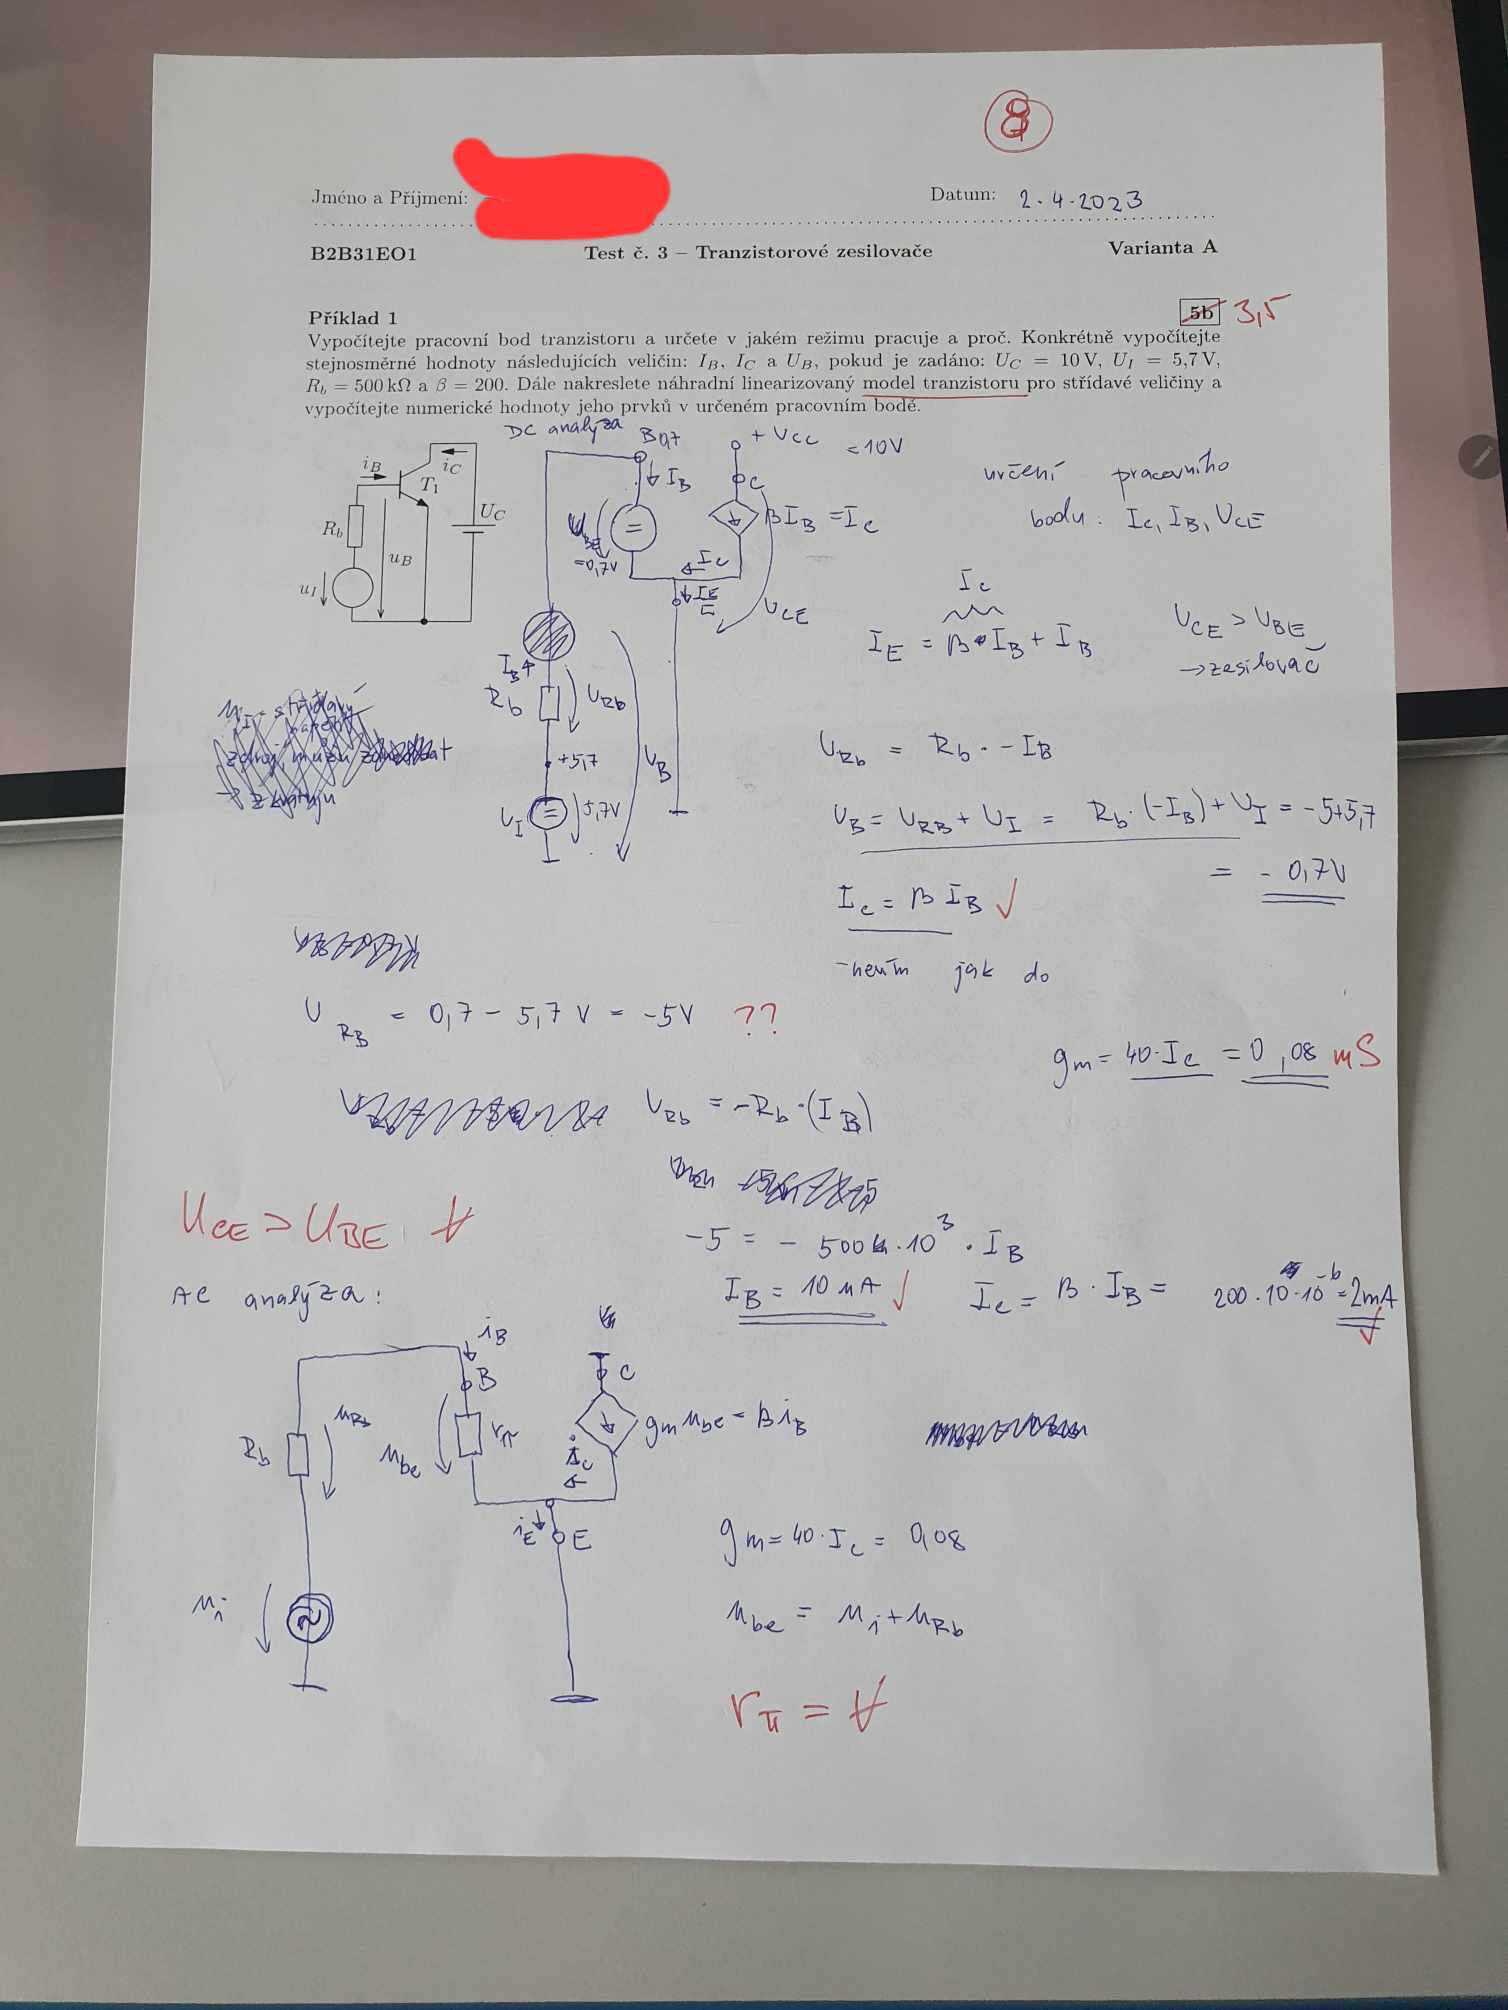 8
Jméno a Příjmení:
Datum: 2.4.2023
B2B31EO1 Test č. 3 – Tranzistorové zesilovače Varianta A
Příklad 1 5b 3,5
Vypočítejte pracovní bod tranzistoru a určete v jakém režimu pracuje a proč. Konkrétně vypočítejte
stejnosměrné hodnoty následujících veličin: I_B, I_C a U_B, pokud je zadáno: U_C = 10 V, U_I = 5,7 V,
R_b = 500 kΩ a β = 200. Dále nakreslete náhradní linearizovaný model tranzistoru pro střídavé veličiny a
vypočítejte numerické hodnoty jeho prvků v určeném pracovním bodě.
DC analýza
i_B i_C T_1 R_b u_B U_C u_I
B 0,7 I_B
+ U_CC = 10V
C
βI_B = I_C
U_BE = 0,7V
I_C
I_E
E
U_CE
I_B
R_b U_Rb
+5,7
U_B
U_I 5,7V
určení pracovního
bodu: I_C, I_B, U_CE
I_C
I_E = β • I_B + I_B
U_CE > U_BE
→ zesilovač
U_Rb = R_b · - I_B
U_B = U_RB + U_I = R_b · (-I_B) + U_I = -5+5,7
= - 0,7V
I_C = β I_B ✓
-nevím jak do
U_RB = 0,7 - 5,7 V = -5V ??
g_m = 40·I_C = 0,08 mS
U_Rb = -R_b · (I_B)
U_CE > U_BE
-5 = - 500 · 10^3 · I_B
I_B = 10 μA ✓ I_C = β · I_B = 200 · 10 · 10^-6 = 2mA ✓
AC analýza:
i_B
B
C
R_b u_Rb
u_be r_π
g_m u_be = β i_B
i_C
i_E E
u_i
g_m = 40 · I_C = 0,08
u_be = u_i + u_Rb
r_π =